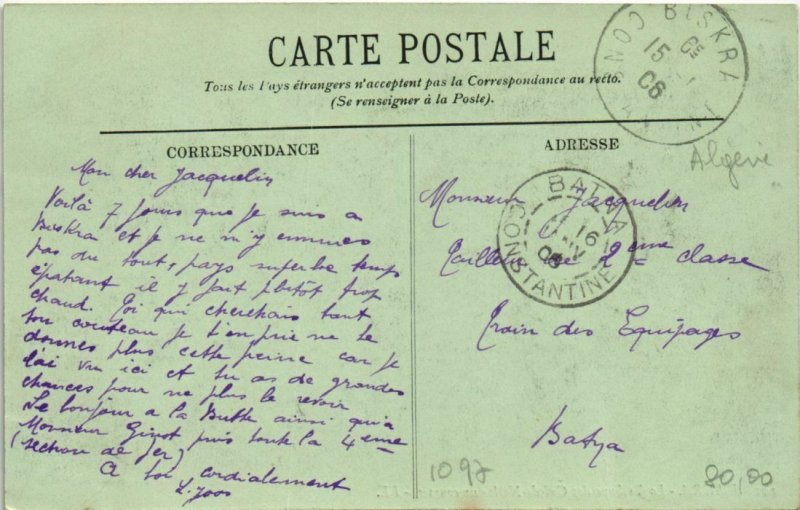 CARTE POSTALE
Tous les Pays étrangers n'acceptent pas la Correspondance au recto.
(Se renseigner à la Poste).
CORRESPONDANCE
Mon cher Jacquelin
Voilà 7 jours que je suis a
Biskra et je ne m'y ennuies
pas du tout, pays superbe temps
épatant il y fait plutôt trop
chaud. Toi qui cherchais tant
ton couteau je t'en prie ne te
donnes plus cette peine car je
l'ai vu ici et tu as de grandes
chances pour ne plus le revoir
Le bonjour a la Butte ainsi qu'a
Monsieur Ginot puis toute la 4eme
(section de fer)
A toi cordialement
L. Joos
ADRESSE
Monsieur Jacquelin
Tailleur de 2eme classe
Train des Equipages
Batna
BISKRA
15
06
CONSTANTINE
BATNA
16
06
CONSTANTINE
Algérie
1097
80,00